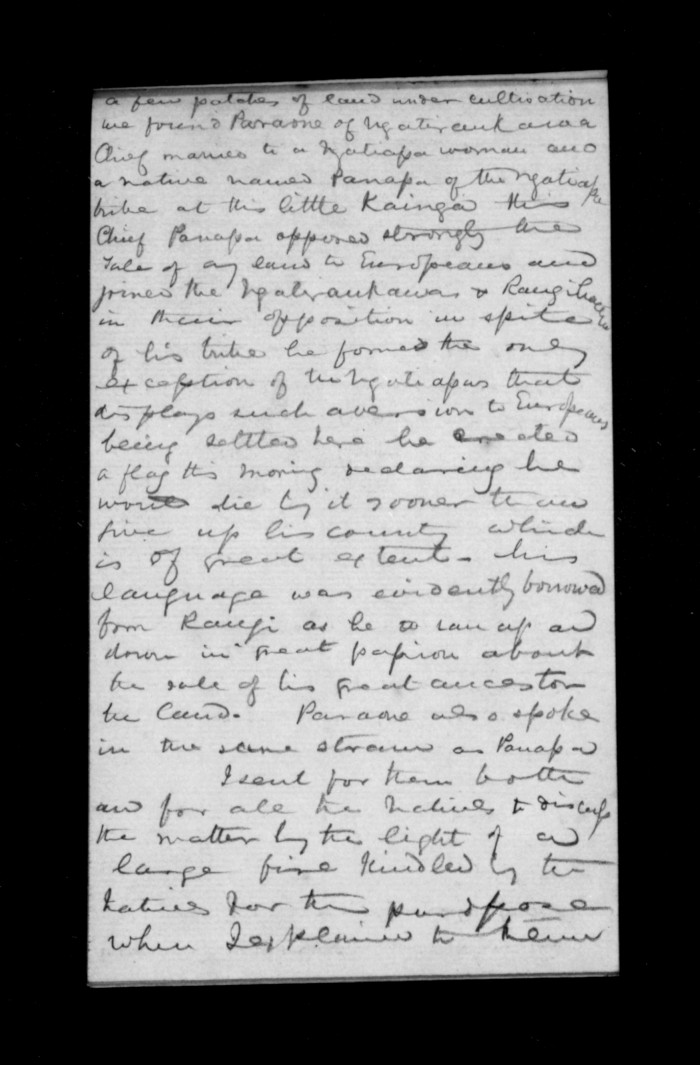 a few patches of land under cultivation
we found Paraone of Ngatiraukawa a
Chief married to a Ngatiapa woman and
a native named Panapa of the Ngatiapa
tribe at this little Kainga this
Chief Panapa opposed strongly the
Sale of any land to Europeans and
joined the Ngatiraukawas & Rangihaeata
in their opposition in spite
of his tribe he formed the only
exception of the Ngatiapas that
displays such aversion to Europeans
being settled here he erected
a flag this morning declaring he
would die by it sooner than
give up his country which
is of great extent - his
language was evidently borrowed
from Rangi as he ran up and
down in great passion about
the sale of his great ancestor
the Land. Paraone also spoke
in the same strain as Panapa
I sent for them both
and for all the Natives to discuss
the matter by the light of a
large fire kindled by the
Natives for the purpose
when I explained to them